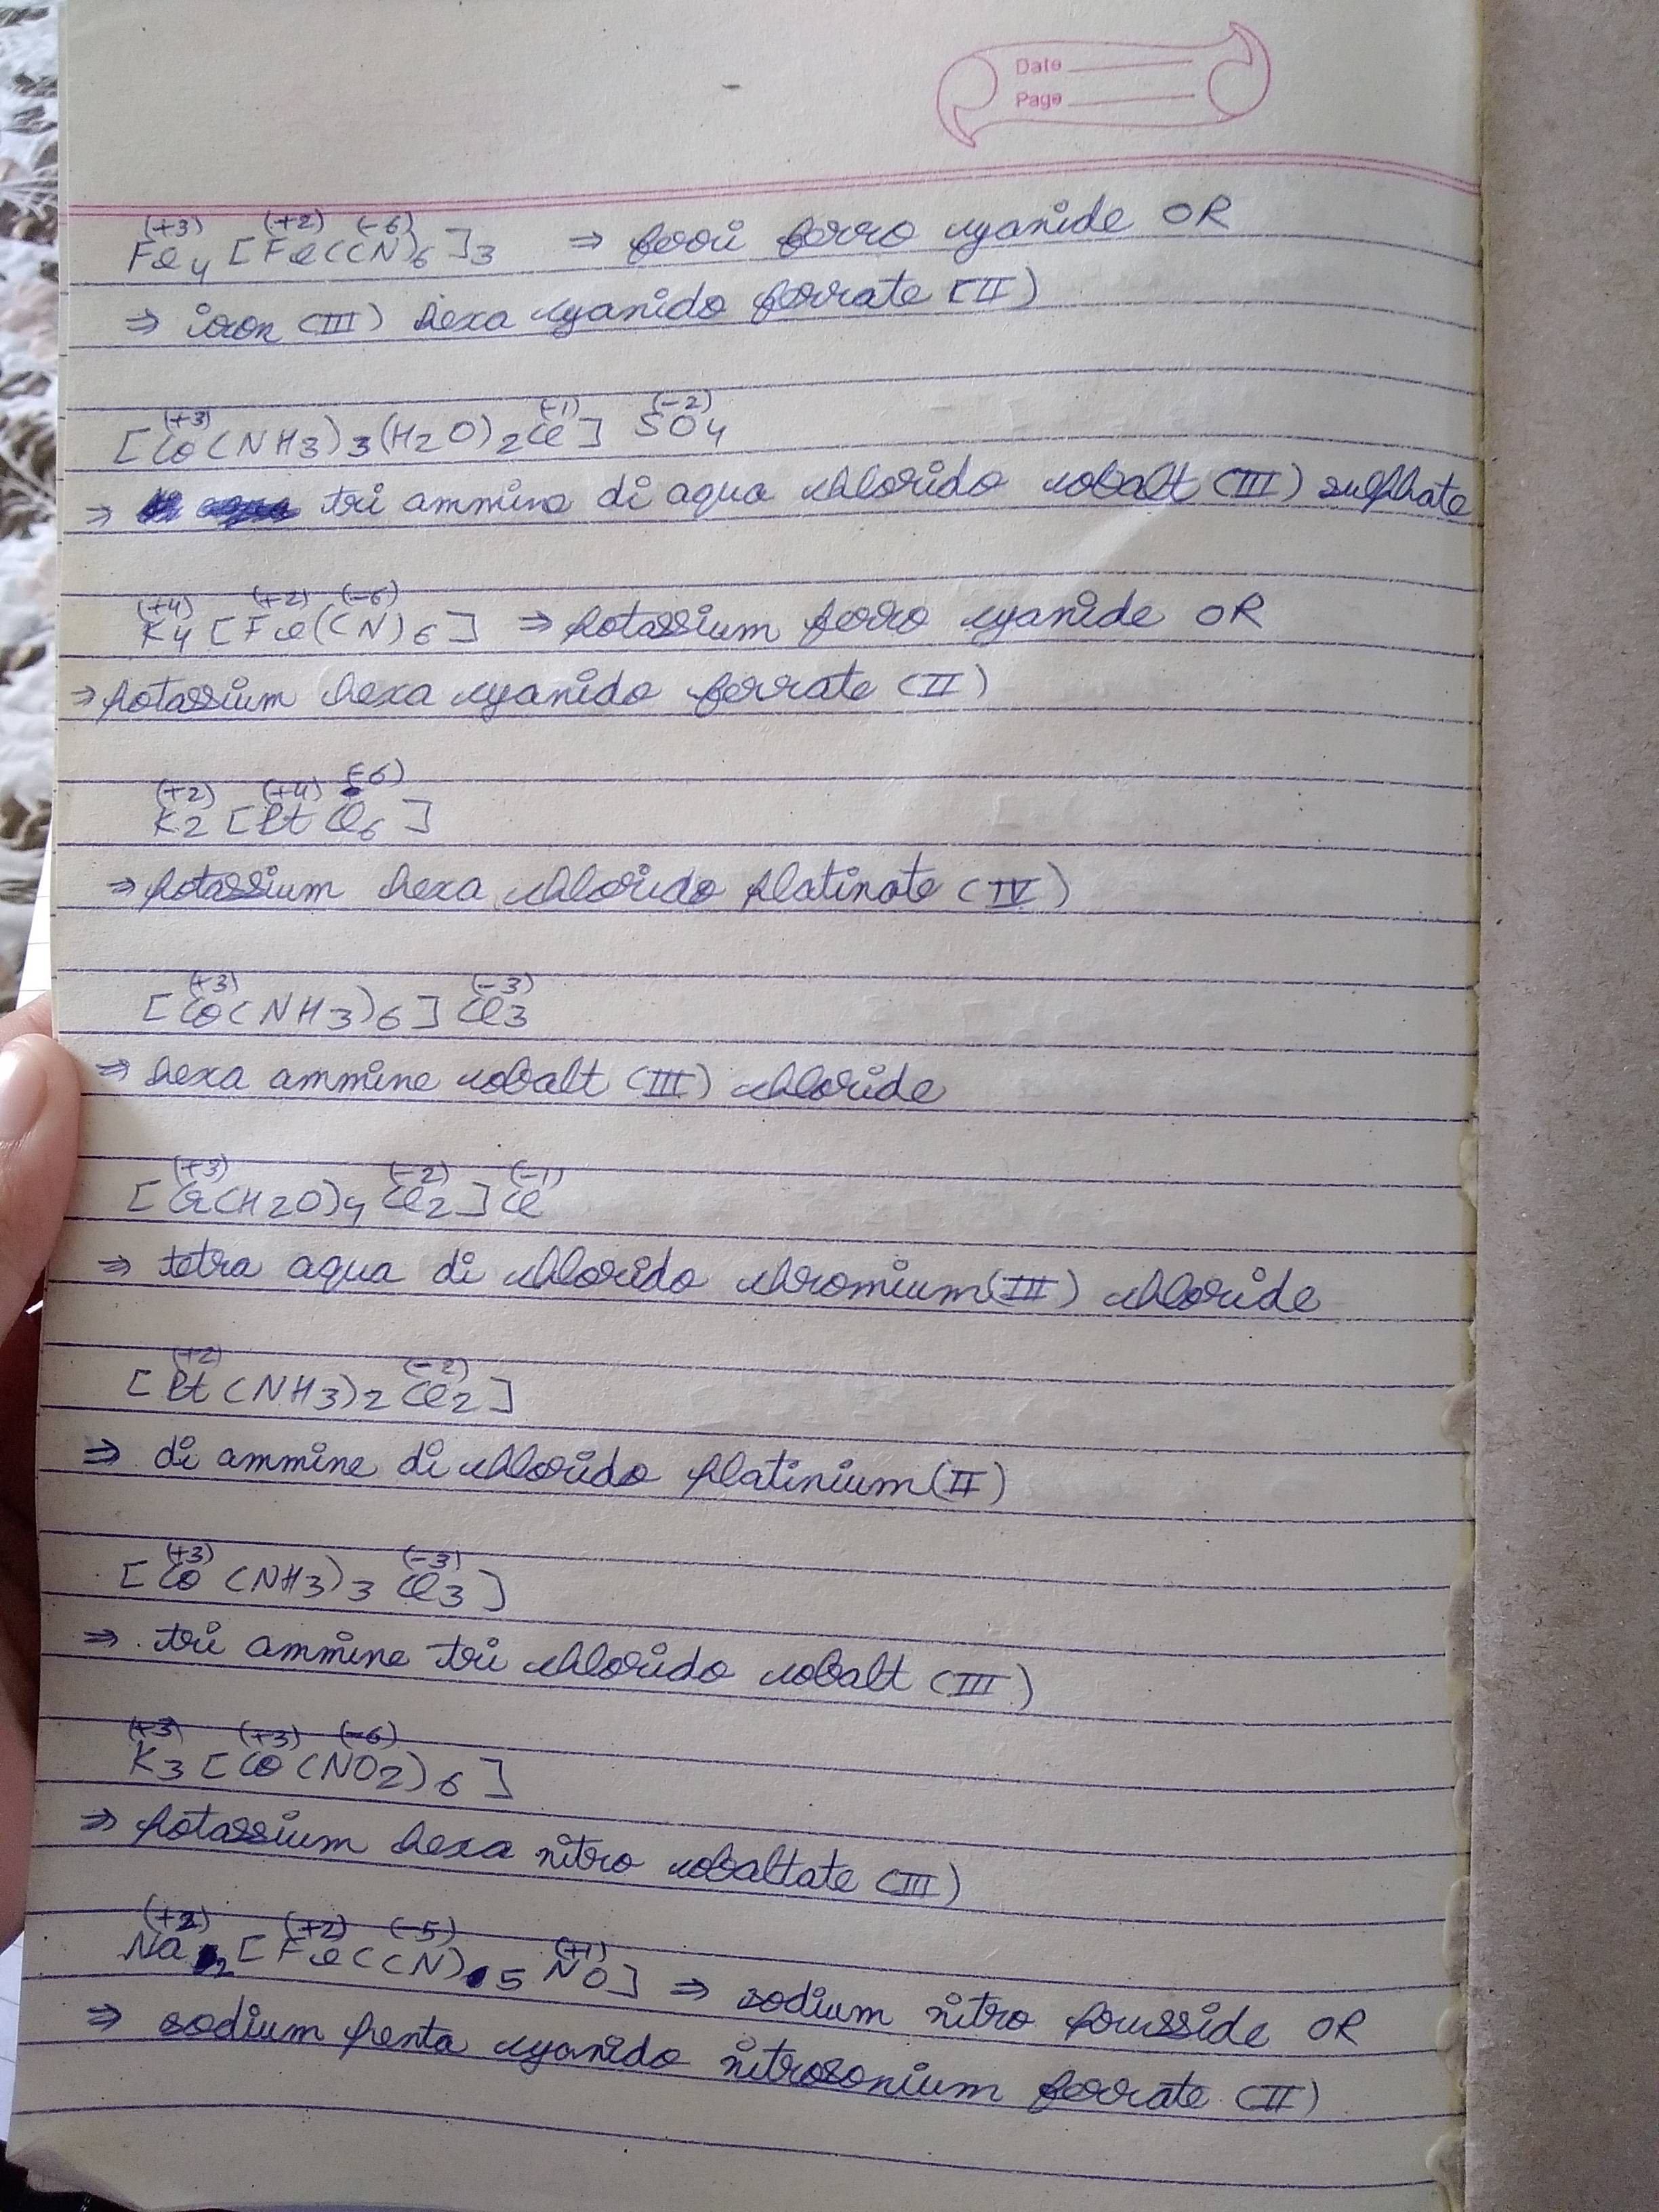 Date
Page
(+3) (+2) (-6)
Fe4 [Fe(CN)6]3 ⇒ ferri ferro cyanide OR
⇒ iron (III) hexa cyanido ferrate (II)
(+3) (-1) (-2)
[Co(NH3)3(H2O)2Cl] SO4
⇒ tri ammine di aqua chlorido cobalt (III) sulphate
(+4) (+2) (-6)
K4 [Fe(CN)6] ⇒ potassium ferro cyanide OR
⇒ potassium hexa cyanido ferrate (II)
(+2) (+4) (-6)
K2 [Pt Cl6]
⇒ potassium hexa chlorido platinate (IV)
(+3) (-3)
[Co(NH3)6] Cl3
⇒ hexa ammine cobalt (III) chloride
(+3) (-2) (-1)
[Cr(H2O)4 Cl2] Cl
⇒ tetra aqua di chlorido chromium(III) chloride
(+2) (-2)
[Pt (NH3)2 Cl2]
⇒ di ammine di chlorido platinium(II)
(+3) (-3)
[Co (NH3)3 Cl3]
⇒ tri ammine tri chlorido cobalt (III)
(+3) (+3) (-6)
K3 [Co (NO2)6]
⇒ potassium hexa nitro cobaltate (III)
(+2) (+2) (-5) (+1)
Na2 [Fe(CN)5 NO] ⇒ sodium nitro prusside OR
⇒ sodium penta cyanido nitrosonium ferrate (II)